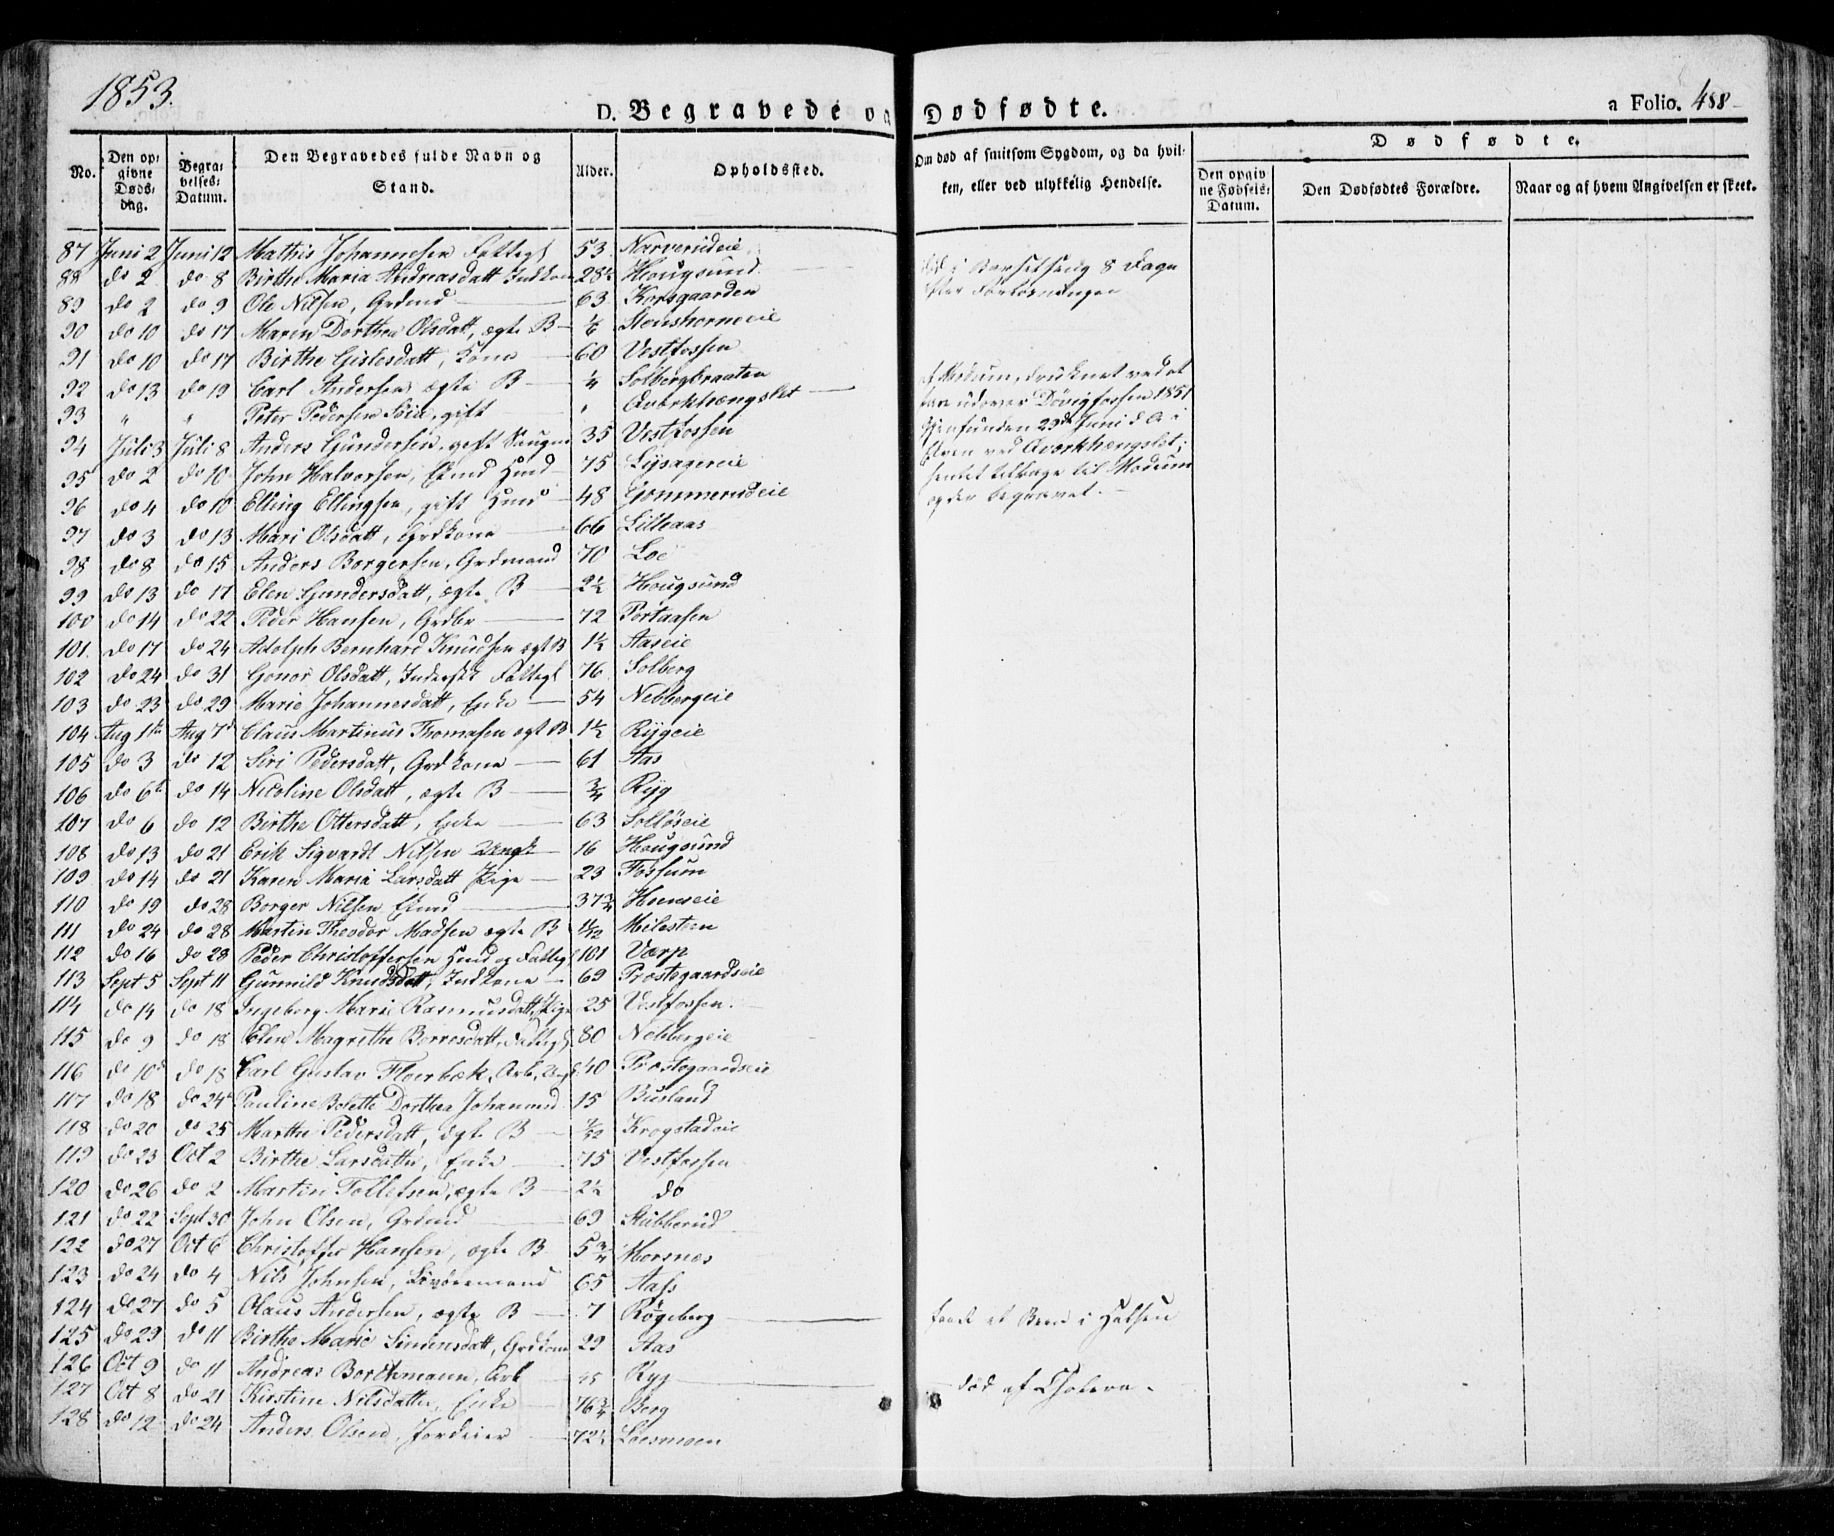 1853.
D. Begravede og Dødfødte.
a Folio. 488
No.
Den opgivne Døds-dag.
Begravelses-Datum.
Den Begravedes fulde Navn og Stand.
Alder.
Opholdssted.
Om død af smitsom Sygdom, og da hvilken, eller ved ulykkelig Hendelse.
Dødfødte.
Den opgivne Fødsels-Datum.
Den Dødfødtes Forældre.
Naar og af hvem Angivelsen er skeet.
87 Juni 2 Juni 12 Mathis Johannesen Fattigl 53 Narverudeie
88 do 2 do 8 Birthe Maria Andreasdatt Indkone 28½ Hougsund død i Barselseng 8 Dage
89 do 2 do 9 Ole Nilsen, Grdmd 63 Korsgaarden efter Forløsningen
90 do 10 do 17 Maren Dorthea Olsdatt, ægte B Stenshorneeie
91 do 10 do 17 Birthe Gislesdatt, Kone 60 Vestfossen
92 do 13 do 19 Carl Andersen ægte B ¼ Solbergbraaten af Modum, druknet ved at
93 " " Peter Pedersen Svia, gift " Aaverkhængslet fare udover Døvigfossen 1851
94 Juli 3 Juli 8 Anders Gundersen, gift 35 Vestfossen Gjenfunden 29de Juni d A i
95 do 2 do 10 John Halvorsen, Hmd 75 Lysagereie Elven ved Aaverkhængslet;
96 do 4 do 10 Elling Ellingsen, gift Hmd 48 Gommerudeie hentet tilbage til Modum
97 do 3 do 13 Mari Olsdatt, Grdkone 66 Lilleaas og der begravet.
98 do 8 do 15 Anders Borgersen, Grdmand 70 Loe
99 do 13 do 17 Elen Gundersdatt, ægte B 2½ Hougsund
100 do 14 do 22 Peder Hansen, Grdbr 72 Portaasen
101 do 17 do 24 Adolph Bernhard Knudsen ægt B 1½ Aaseie
102 do 24 do 31 Gonor Olsdatt, Inderst Fattigl 76 Solberg
103 do 23 do 29 Marie Johannesdatt, Enke 54 Nebbergeie
104 Aug 1ste Aug 7d Claus Martinus Thomasen ægt B 1½ Rygeie
105 do 3 do 12 Siri Pedersdatt, Grdkone 61 Aas
106 do 6te do 14 Nicoline Olsdatt, ægte B ¾ Ryg
107 do 6 do 12 Birthe Ottersdatt, Enke 63 Solløseie
108 do 13 do 21 Erik Sigvardt Nilsen Ungk 16 Hougsund
109 do 14 do 21 Karen Maria Larsdatt Pige 23 Fossum
110 do 19 do 28 Borger Nilsen 37¾ Hoenseie
111 do 24 do 28 Martin Theodor Madsen ægte B Milesten
112 do 16 do 28 Peder Christoffersen Hmd og Fattigl 101 Værp
113 Sept 5 Sept 11 Gunnild Knudsdatt, Indkone 69 Præstegaardseie
114 do 14 do 18 Ingeborg Marie Rasmusdatt, Pige 25 Vestfossen
115 do 9 do 18 Elen Magrethe Borresdatt, Fattigl 80 Nebbergeie
116 do 10d do 18 Carl Gustav Floerbæk, Arb, Ungk 40 Præstegaardseie
117 do 18 do 24d Pauline Bolette Dorthea Johannesd 15 Busland
118 do 20 do 25 Marthe Pedersdatt, ægte B Krogstadeie
119 do 23 Oct 2 Birthe Larsdatter, Enke 75 Vestfossen
120 do 26 do 2 Martin Tollefsen, ægte B 2½ do
121 do 22 Sept 30 John Olsen, Grdmd 69 Stubberud
122 do 27 Oct 6 Christoffer Hansen, ægte B 5¾ Horsnes
123 do 24 do 4 Nils Johnsen, Livøremand 65 Aass
124 do 27 do 5 Olaus Andersen, ægte B 7 Røgeberg faaet et Been i Halsen
125 do 29 do 11 Birthe Marie Simensdatt, Grdkone 29 Aas
126 Oct 9 do 11 Andreas Borchmann, Arb Ryg død af Cholera.
127 Oct 8 do 21 Kirstine Nilsdatter, Enke 76¾ Berg
128 do 12 do 24 Anders Olsen, Jordeier 72½ Loesmoen